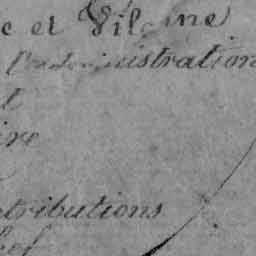 e et Vilaine
l'administration
t
ire
tributions